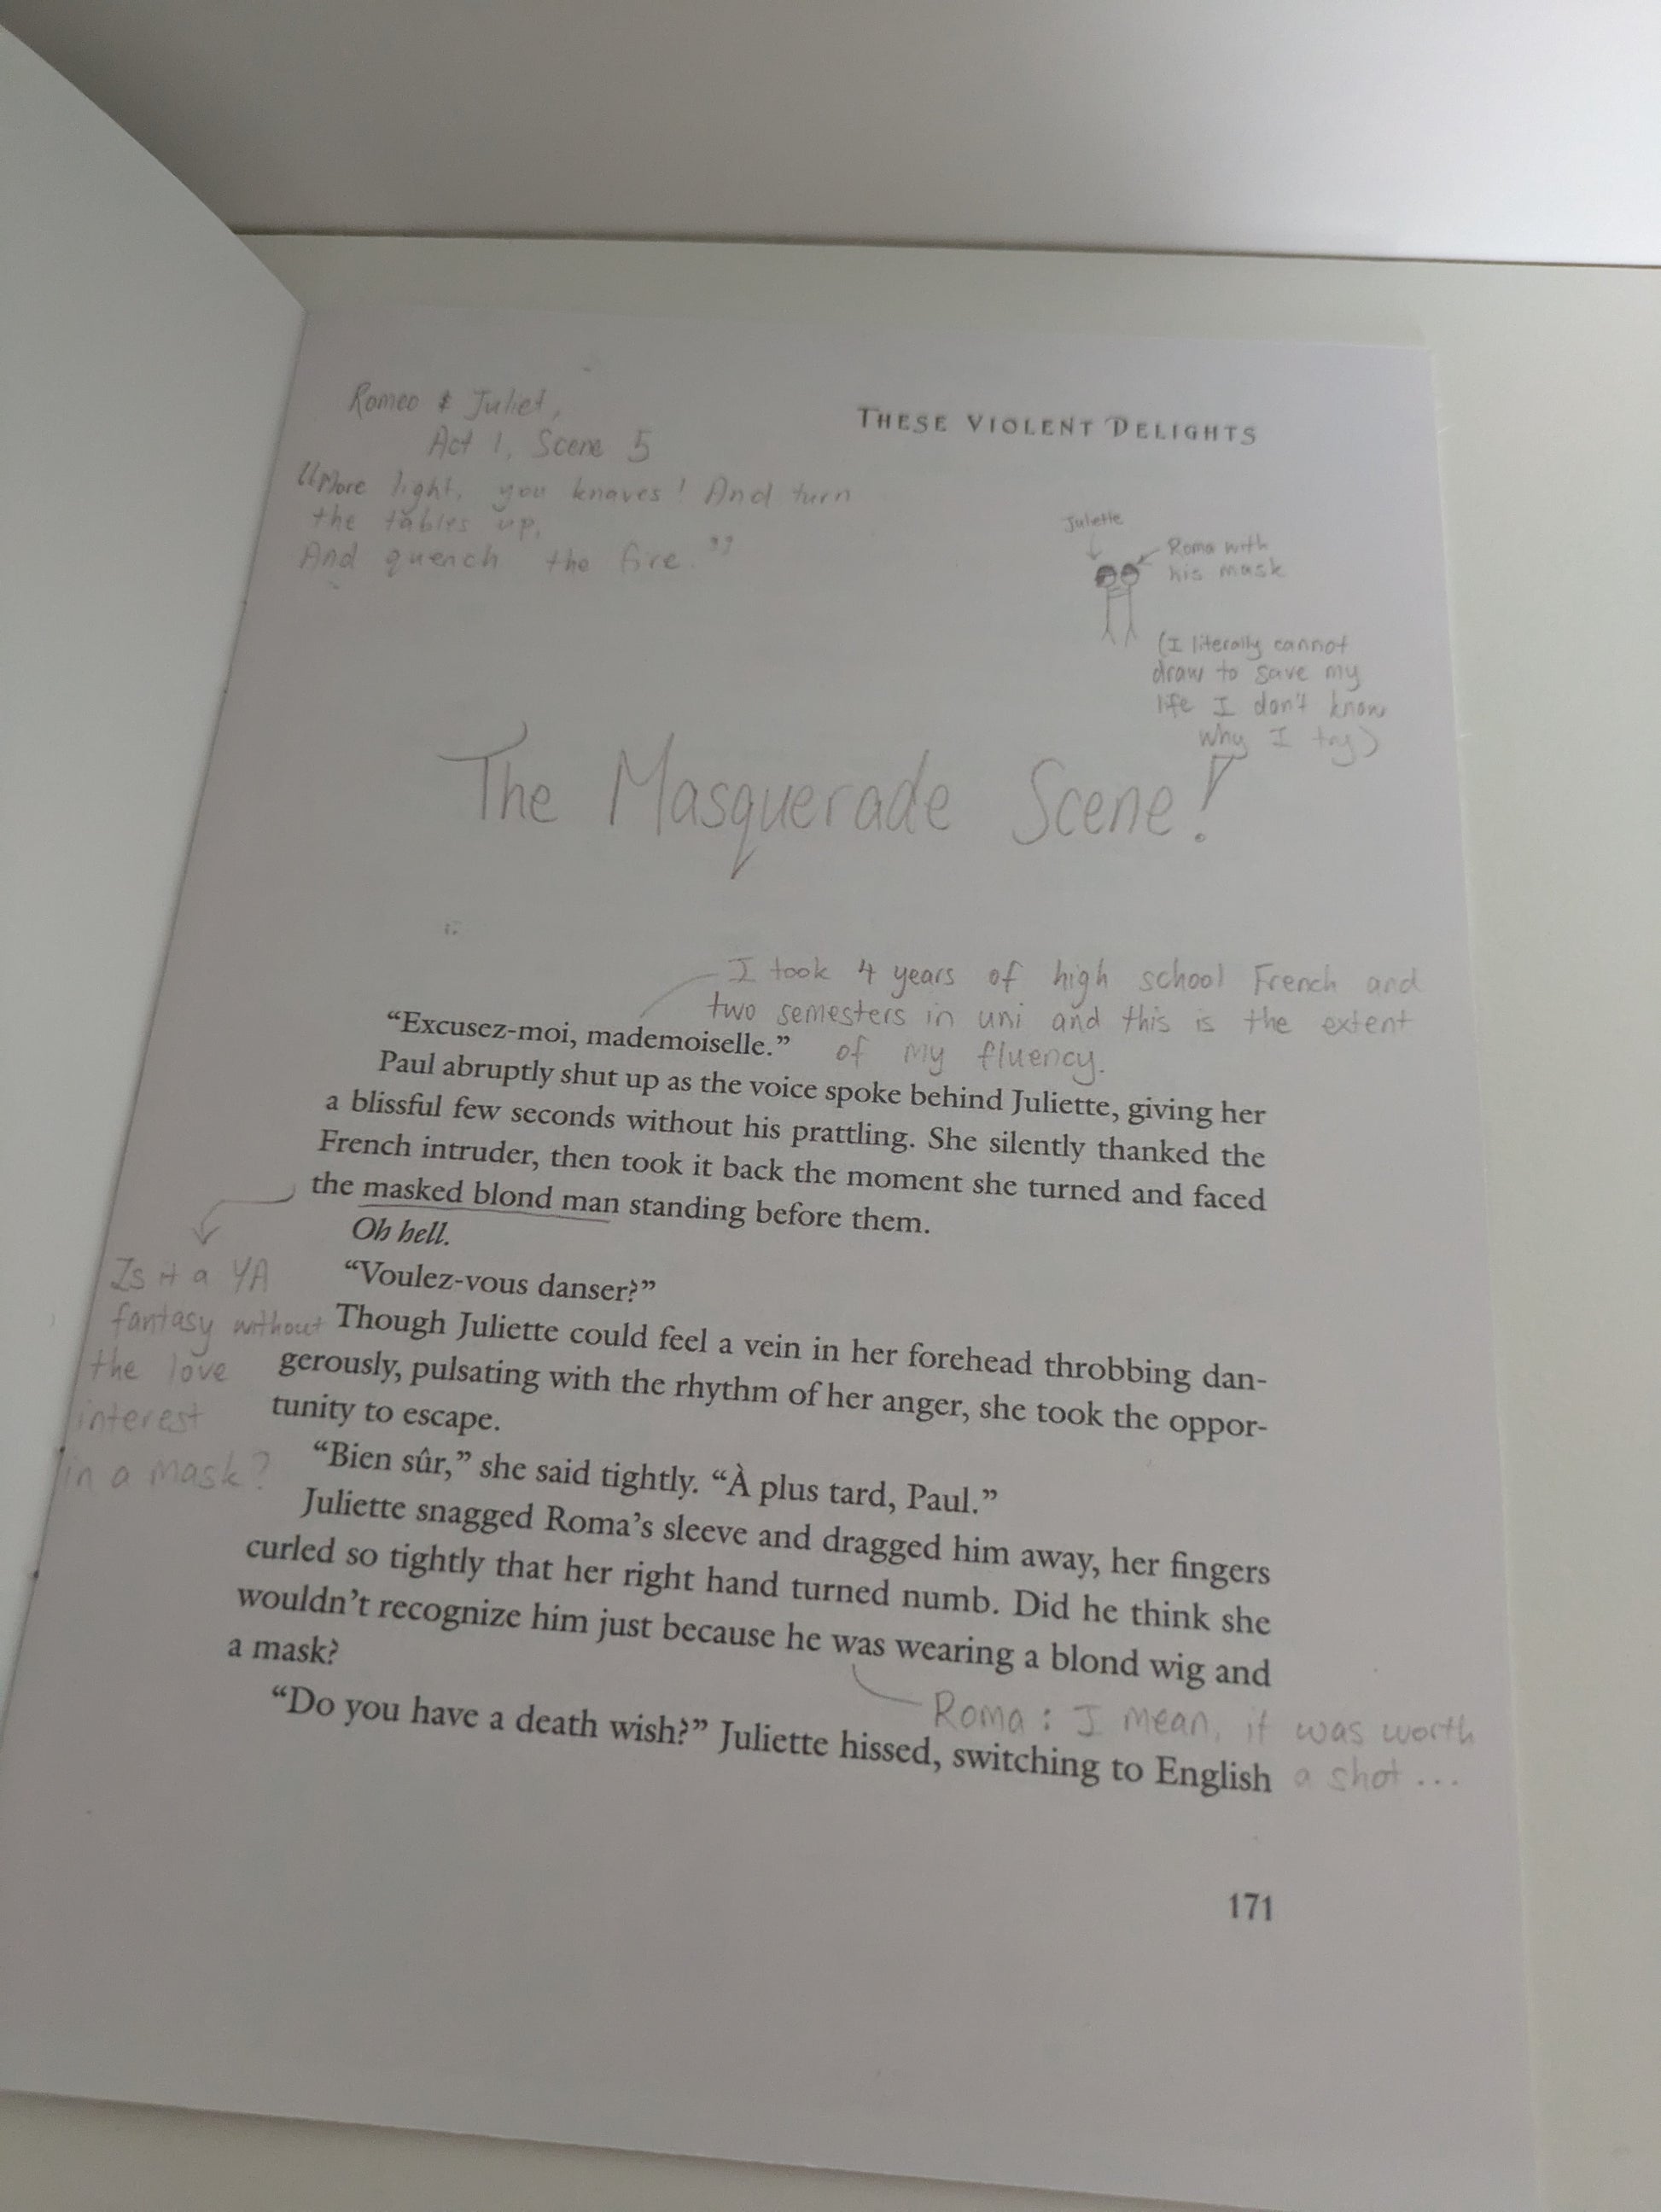 Romeo & Juliet,
Act 1, Scene 5
"More light, you knaves! And turn
the tables up,
And quench the fire."
THESE VIOLENT DELIGHTS
Juliette
Roma with
his mask
(I literally cannot
draw to save my
life I don't know
why I try)
The Masquerade Scene!
I took 4 years of high school French and
two semesters in uni and this is the extent
of my fluency.
“Excusez-moi, mademoiselle.”
Paul abruptly shut up as the voice spoke behind Juliette, giving her
a blissful few seconds without his prattling. She silently thanked the
French intruder, then took it back the moment she turned and faced
the masked blond man standing before them.
Oh hell.
“Voulez-vous danser?”
Is it a YA
fantasy without
the love
interest
in a mask?
Though Juliette could feel a vein in her forehead throbbing dan-
gerously, pulsating with the rhythm of her anger, she took the oppor-
tunity to escape.
“Bien sûr,” she said tightly. “À plus tard, Paul.”
Juliette snagged Roma’s sleeve and dragged him away, her fingers
curled so tightly that her right hand turned numb. Did he think she
wouldn’t recognize him just because he was wearing a blond wig and
a mask?
Roma: I mean, it was worth
a shot...
“Do you have a death wish?” Juliette hissed, switching to English
171